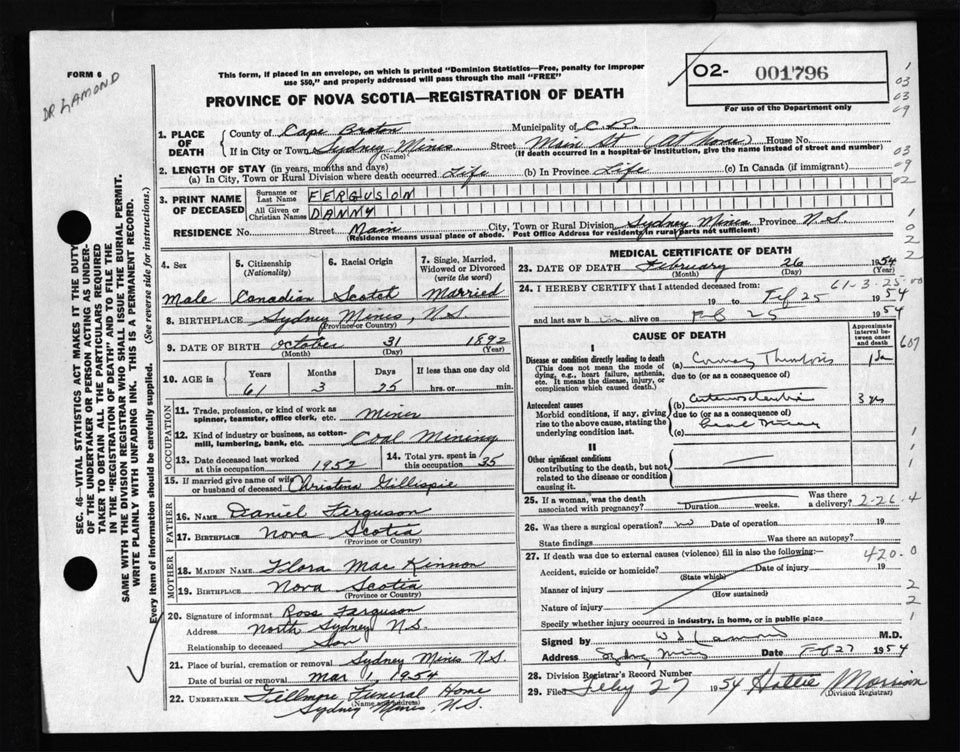 FORM 6
DR LAMOND
This form, if placed in an envelope, on which is printed "Dominion Statistics—Free, penalty for improper
use $50," and properly addressed will pass through the mail "FREE"
PROVINCE OF NOVA SCOTIA—REGISTRATION OF DEATH
02- 001796
For use of the Department only
1
03
03
09
03
09
02
1
0
2
2
SEC. 46—VITAL STATISTICS ACT MAKES IT THE DUTY
OF THE UNDERTAKER OR PERSON ACTING AS UNDER-
TAKER TO OBTAIN ALL THE PARTICULARS REQUIRED
IN THE "REGISTRATION OF DEATH" AND TO FILE THE
SAME WITH THE DIVISION REGISTRAR WHO SHALL ISSUE THE BURIAL PERMIT.
WRITE PLAINLY WITH UNFADING INK. THIS IS A PERMANENT RECORD.
Every item of Information should be carefully supplied. (See reverse side for instructions.)
1. PLACE OF DEATH
County of Cape Breton Municipality of C.B.
If in City or Town Sydney Mines (Name) Street Main St (At home) House No.
(If death occurred in a hospital or institution, give the name instead of street and number)
2. LENGTH OF STAY (in years, months and days)
(a) In City, Town or Rural Division where death occurred Life (b) In Province Life (c) In Canada (if immigrant)
3. PRINT NAME OF DECEASED
Surname or Last Name FERGUSON
All Given or Christian Names DANNY
RESIDENCE No. Street Main City, Town or Rural Division Sydney Mines Province N.S.
(Residence means usual place of abode. Post Office Address for residents in rural parts not sufficient)
4. Sex
Male
5. Citizenship (Nationality)
Canadian
6. Racial Origin
Scotch
7. Single, Married, Widowed or Divorced (write the word)
Married
8. BIRTHPLACE Sydney Mines, N.S.
(Province or Country)
9. DATE OF BIRTH October 31 1892
(Month) (Day) (Year)
10. AGE in Years Months Days If less than one day old
61 3 25 hrs. or min.
OCCUPATION
11. Trade, profession, or kind of work as spinner, teamster, office clerk, etc. Miner
12. Kind of industry or business, as cotton-mill, lumbering, bank, etc. Coal Mining
13. Date deceased last worked at this occupation 1952
14. Total yrs. spent in this occupation 35
15. If married give name of wife or husband of deceased Christena Gillispie
FATHER
16. NAME Daniel Ferguson
17. BIRTHPLACE Nova Scotia
(Province or Country)
MOTHER
18. MAIDEN NAME Flora Mac Kinnon
19. BIRTHPLACE Nova Scotia
(Province or Country)
20. Signature of informant Ross Ferguson
Address North Sydney N.S.
Relationship to deceased Son
21. Place of burial, cremation or removal Sydney Mines N.S.
Date of burial or removal Mar 1, 1954
22. UNDERTAKER Fillmore Funeral Home
(Name and address)
Sydney Mines, N.S.
MEDICAL CERTIFICATE OF DEATH
23. DATE OF DEATH February 26 1954
(Month) (Day) (Year)
61-3-25-00
24. I HEREBY CERTIFY that I attended deceased from:
19 to Feb 25 1954
and last saw h im alive on Feb 25 1954
CAUSE OF DEATH
Approximate interval between onset and death
607
I
Disease or condition directly leading to death
(This does not mean the mode of dying, e.g., heart failure, asthenia, etc. It means the disease, injury, or complication which caused death.)
(a) Coronary Thrombosis
due to (or as a consequence of)
Antecedent causes
Morbid conditions, if any, giving rise to the above cause, stating the underlying condition last.
(b) 3 yrs
due to (or as a consequence of)
(c)
II
Other significant conditions
contributing to the death, but not related to the disease or condition causing it.
1
1
1
25. If a woman, was the death associated with pregnancy? Duration weeks. Was there a delivery? 2-26-4
26. Was there a surgical operation? no Date of operation 19
State findings Was there an autopsy?
27. If death was due to external causes (violence) fill in also the following:—
420.0
Accident, suicide or homicide? (State which) Date of injury 19
Manner of injury (How sustained) 2
Nature of injury 2
Specify whether injury occurred in industry, in home, or in public place 1
Signed by W S Lamond M.D.
Address Sydney Mines Date Feb 27 1954
28. Division Registrar's Record Number
29. Filed Feby 27 1954 Hattie Morrison
(Division Registrar)